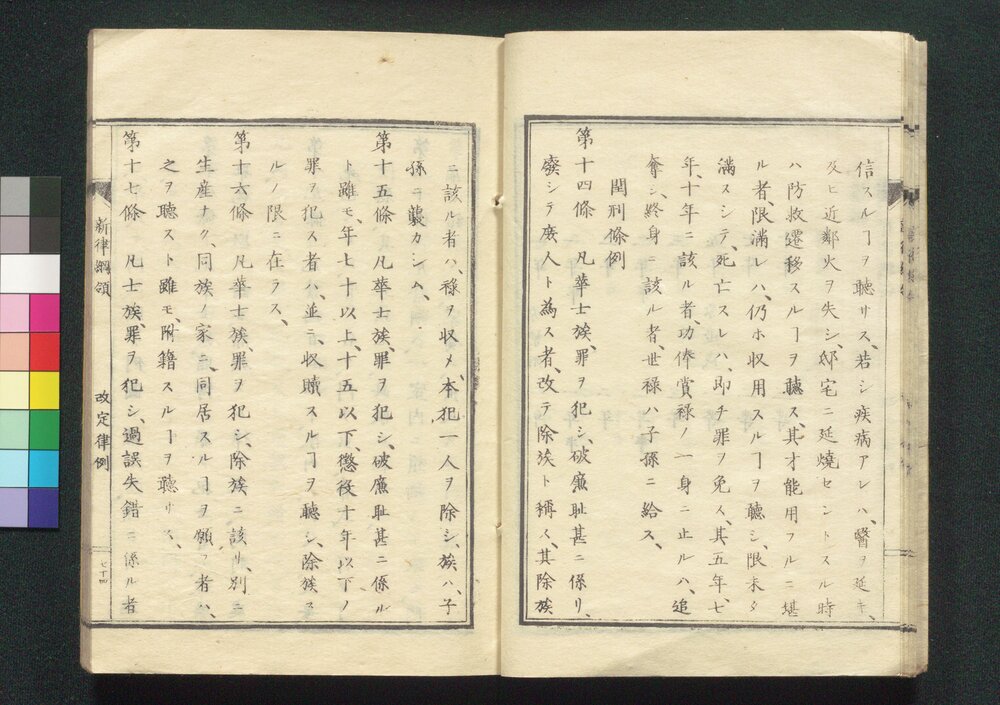 信スルヿヲ聴リス、若シ疾病アレハ、醫ヲ延キ、
及ヒ近鄰火ヲ失シ、邸宅ニ延燒セントスル時
ハ、防救遷移スルヿヲ聴ス、其才能用フルニ堪
ル者、限滿レハ、仍ホ収用スルヿヲ聴シ、限未タ
滿スシテ、死亡スレハ、即チ罪ヲ免ス、其五年、七
年、十年ニ該ル者、功俸賞禄ノ一身ニ止ルハ、追
奪シ、終身ニ該ル者、世禄ハ子孫ニ給ス、
閏刑條例
第十四條 凡華士族、罪ヲ犯シ、破廉恥甚ニ係リ、
廢シテ庶人ト為ス者、改テ除族ト稱ス、其除族
ニ該ル者ハ、禄ヲ収メ、本犯一人ヲ除シ、族ハ、子
孫ニ襲カシム、
第十五條 凡華士族、罪ヲ犯シ、破廉恥甚ニ係ル
ト雖モ、年七十以上、十五以下、懲役十年以下ノ
罪ヲ犯ス者ハ、並ニ、収贖スルヿヲ聴シ、除族ス
ルノ限ニ在ラス、
第十六條 凡華士族、罪ヲ犯シ、除族ニ該リ、別ニ
生産ナク、同族ノ家ニ、同居スルヿヲ願フ者ハ、
之ヲ聴スト雖モ、附籍スルヿヲ聴リス、
第十七條 凡士族、罪ヲ犯シ、過誤失錯ニ係ル者
新律綱領 改定律例 七十四